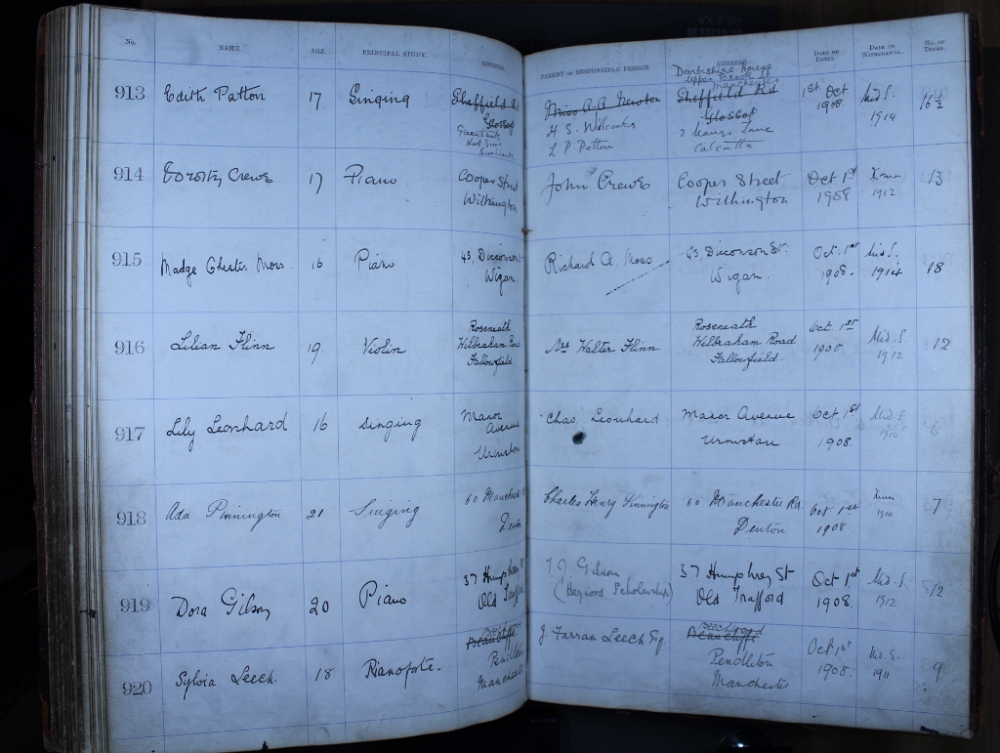 No. NAME. AGE. PRINCIPAL STUDY. ADDRESS. PARENT OR RESPONSIBLE PERSON ADDRESS DATE OF ENTRY. DATE OF WITHDRAWAL. NO. OF TERMS.
Darbishire House
Upper Brook St
Manchester
913 Edith Patton 17 Singing Sheffield Rd Miss A.A. Newton Sheffield Rd 1st Oct Mid S.
Glossop H S. Glossop 1908 1914
L P Patton Lane
Calcutta
914 Dorothy Crewe 17 Piano Cooper Street John Crewe Cooper Street Oct 1st Xmas 13
Withington Withington 1908 1912
915 Madge Moss 16 Piano 43, Dicconson Richard A. Moss 43, Dicconson St. Oct. 1st Mid S. 18
Wigan. Wigan. 1908. 1914
916 Lilian Flinn 19 Violin Roseneath Mrs Walter Flinn Roseneath Oct 1st Mid. S. 12
Wilbraham Road Wilbraham Road 1908 1912
Fallowfield Fallowfield.
917 Lily Leonhard 16 Singing Manor Chas Leonhard Manor Avenue Oct 1st Mid S 6
Avenue Urmston 1908. 1910
Urmston
918 Ada Pinnington 21 Singing 60 Manchester Charles Henry Pinnington 60 Manchester Rd Oct 1st Xmas 7
Denton Denton 1908. 1910
919 Dora Gilson 20 Piano 37 Humphrey T J Gilson 37 Humphrey St Oct 1st Mid. S. 12
Old Trafford (Heywood Scholarship) Old Trafford 1908. 1912
920 Sylvia Leech. 18 Pianoforte. J Farran Leech Esq. Oct 1st Mid. S. 9
Pendleton Pendleton 1908. 1911
Manchester Manchester